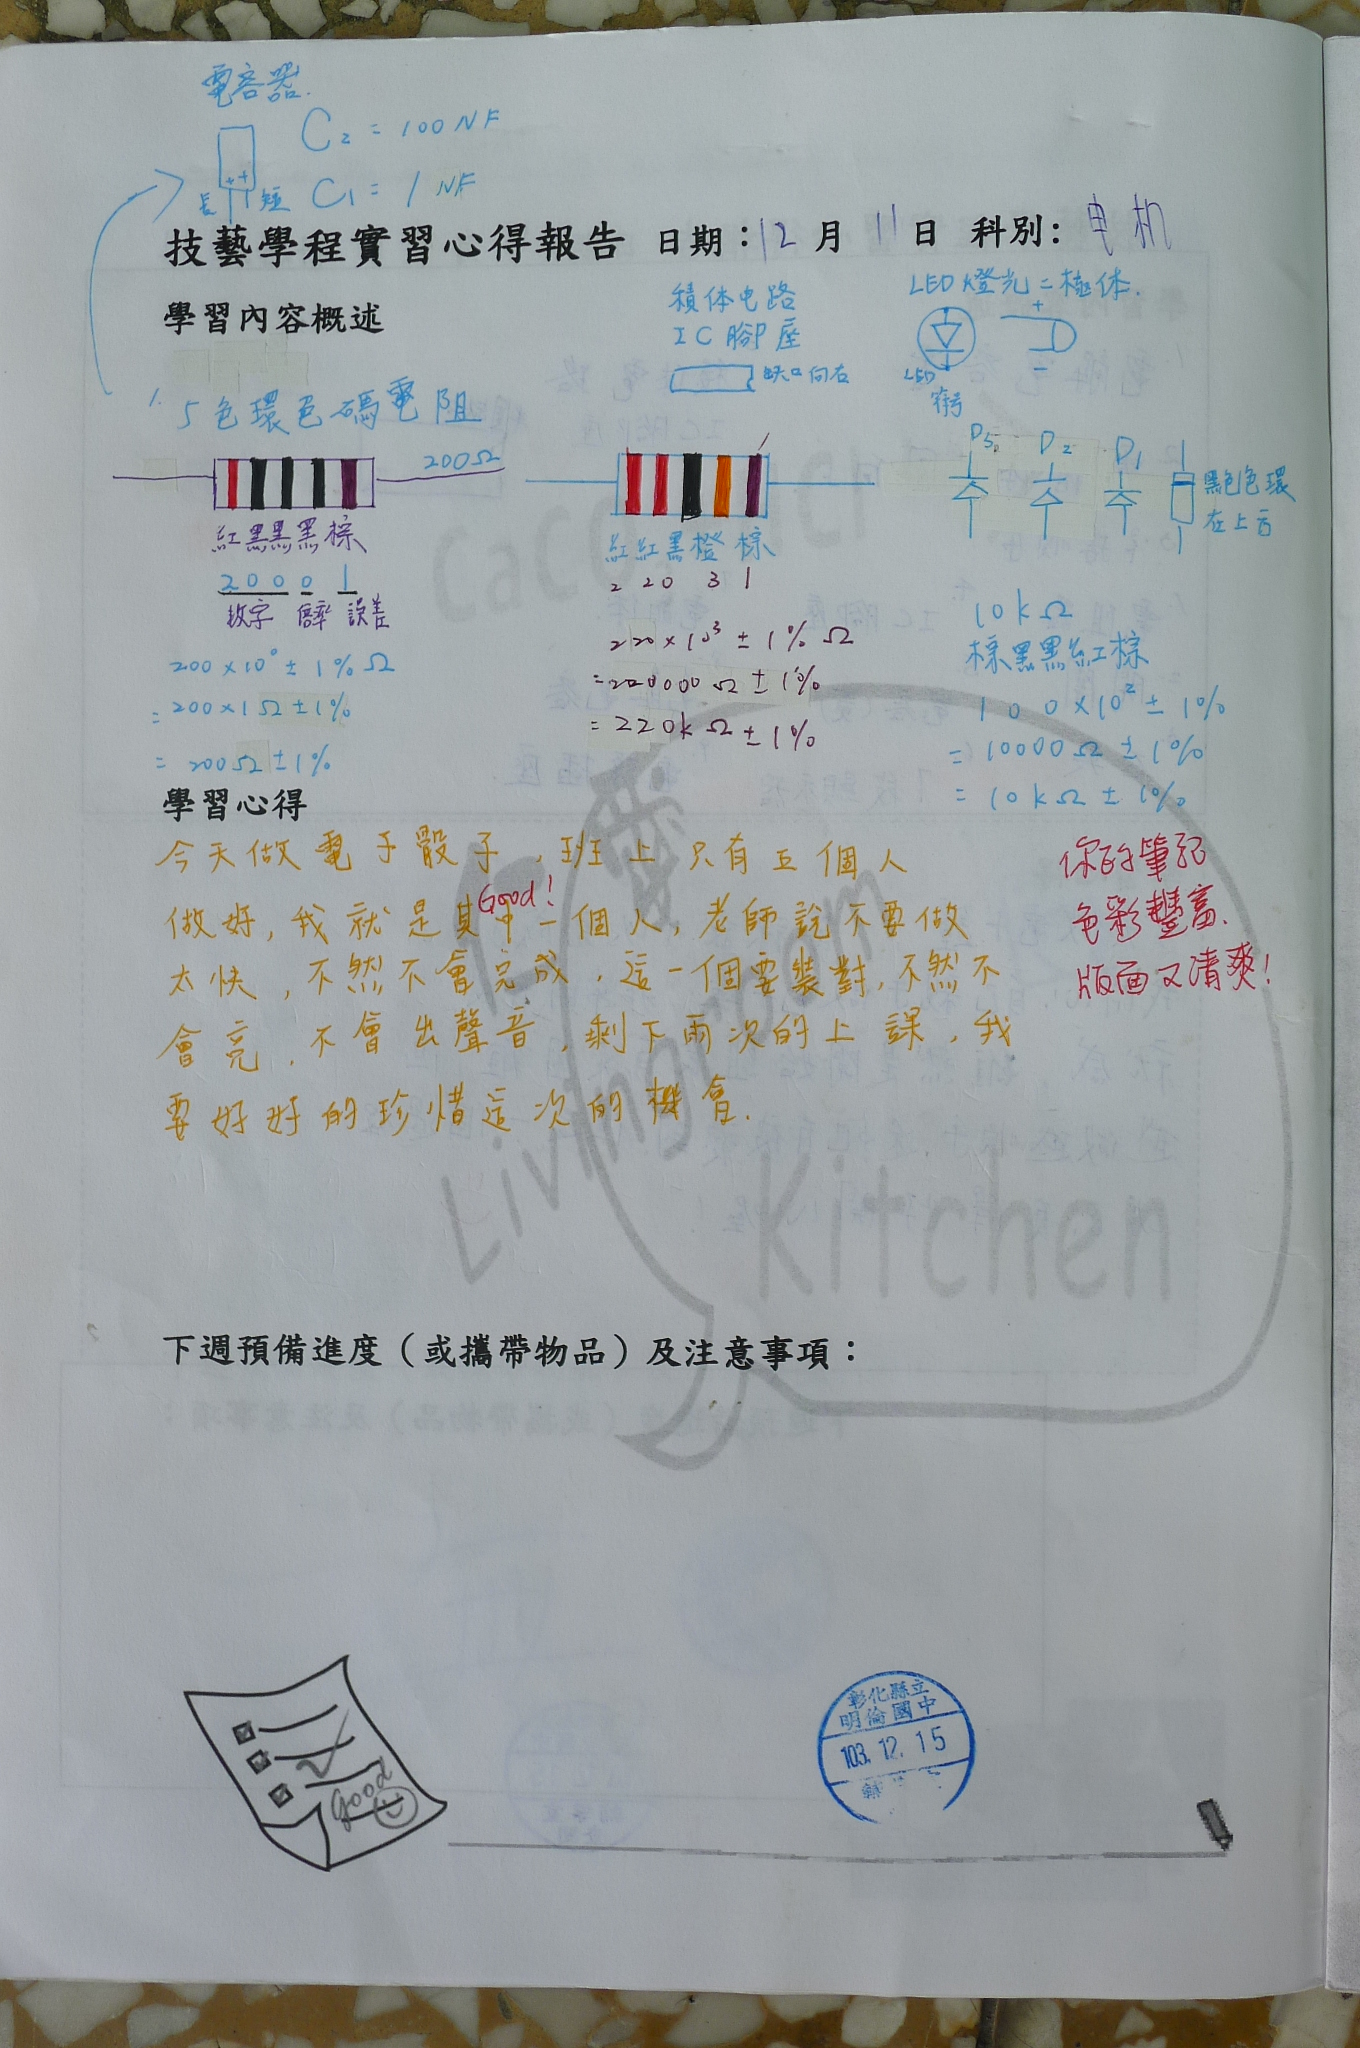 電容器.
C₂ = 100 NF
++
長 短 C1 = 1 NF
技藝學程實習心得報告 日期：12月11日 科別：电机
學習內容概述
積体电路
IC腳座
缺口向右
LED燈光二極体.
+
-
LED
符号
1. 5色環色碼電阻
200Ω
紅黑黑黑棕
2 0 0 0 1
数字 倍率 誤差
200×10⁰±1%Ω
=200×1Ω±1%
=200Ω±1%
紅紅黑橙棕
2 20 3 1
220×10³±1%Ω
=220000Ω±1%
=220kΩ±1%
D5 D2 D1
黑色色環
在上方
10kΩ
棕黑黑紅棕
100×10²±1%
=10000Ω±1%
=10kΩ±1%
學習心得
今天做電子骰子，班上只有五個人
做好，我就是其中一個人，老師說不要做
太快，不然不會完成，這一個要裝對，不然不
會亮，不會出聲音，剩下兩次的上課，我
要好好的珍惜這次的機會.
Good!
你的筆記
色彩豐富.
版面又清爽!
愛
Livingroom
Kitchen
下週預備進度（或攜帶物品）及注意事項：
good
彰化縣立
明倫國中
103.12.15